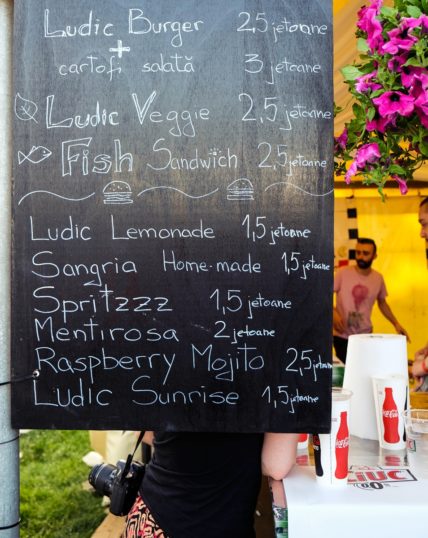 Ludic Burger 2,5 jetoane
+
cartofi salată 3 jetoane
Ludic Veggie 2,5 jetoane
Fish Sandwich 2,5 jetoane
Ludic Lemonade 1,5 jetoane
Sangria Home-made 1,5 jetoane
Spritzzz 1,5 jetoane
Mentirosa 2 jetoane
Raspberry Mojito 2,5 jetoane
Ludic Sunrise 1,5 jetoane
Coca-Cola
Coca-Cola